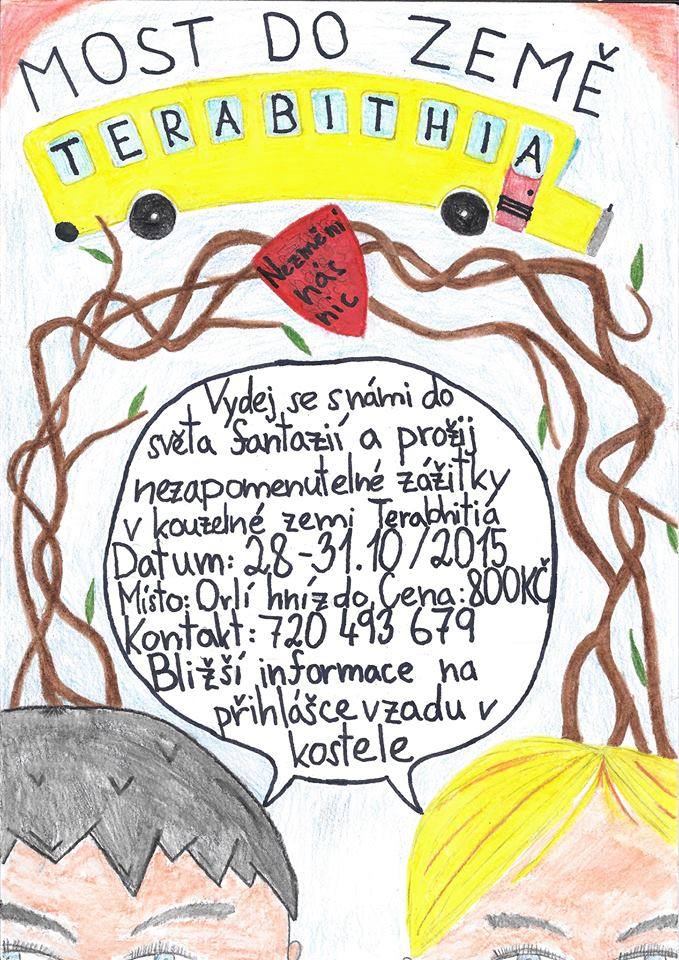 MOST DO ZEMĚ
TERABITHIA
Nezmění
nás
nic
Vydej se s námi do
světa fantazií a prožij
nezapomenutelné zážitky
v kouzelné zemi Terabhitia
Datum: 28-31.10/2015
Místo: Orlí hnízdo, Cena: 800KČ
Kontakt: 720 493 679
Bližší informace na
přihlášce vzadu v
kostele